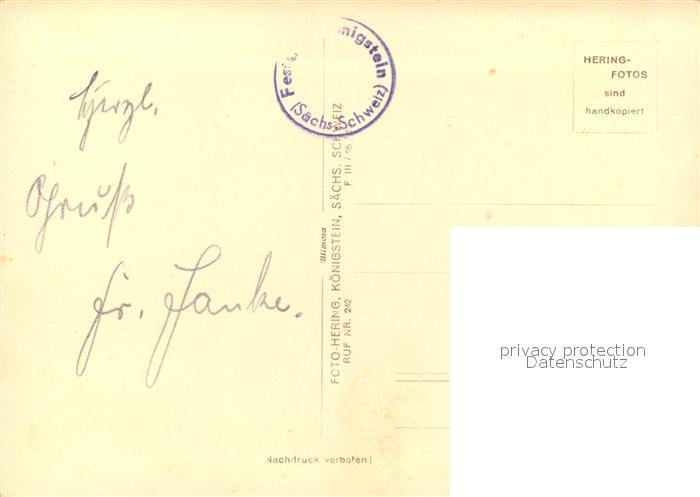 Herzl.
Gruß
Fr. Janke.
Fest nigstein
(Sächs. Schweiz)
HERING-
FOTOS
sind
handkopiert
Mimosa
FOTO-HERING, KÖNIGSTEIN, SÄCHS. SCHWEIZ
RUF NR. 242
F III /
Nachdruck verboten!
privacy protection
Datenschutz